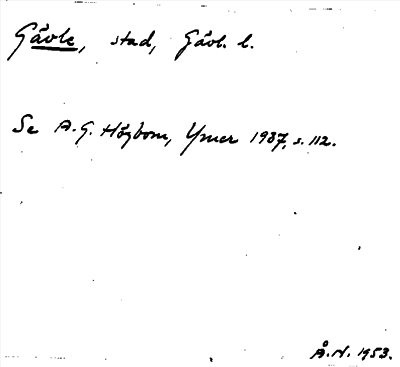 Gävle, stad, Gävl. l.
Se A.G. Högbom, Ymer 1937, s. 112.
Å.N. 1953.